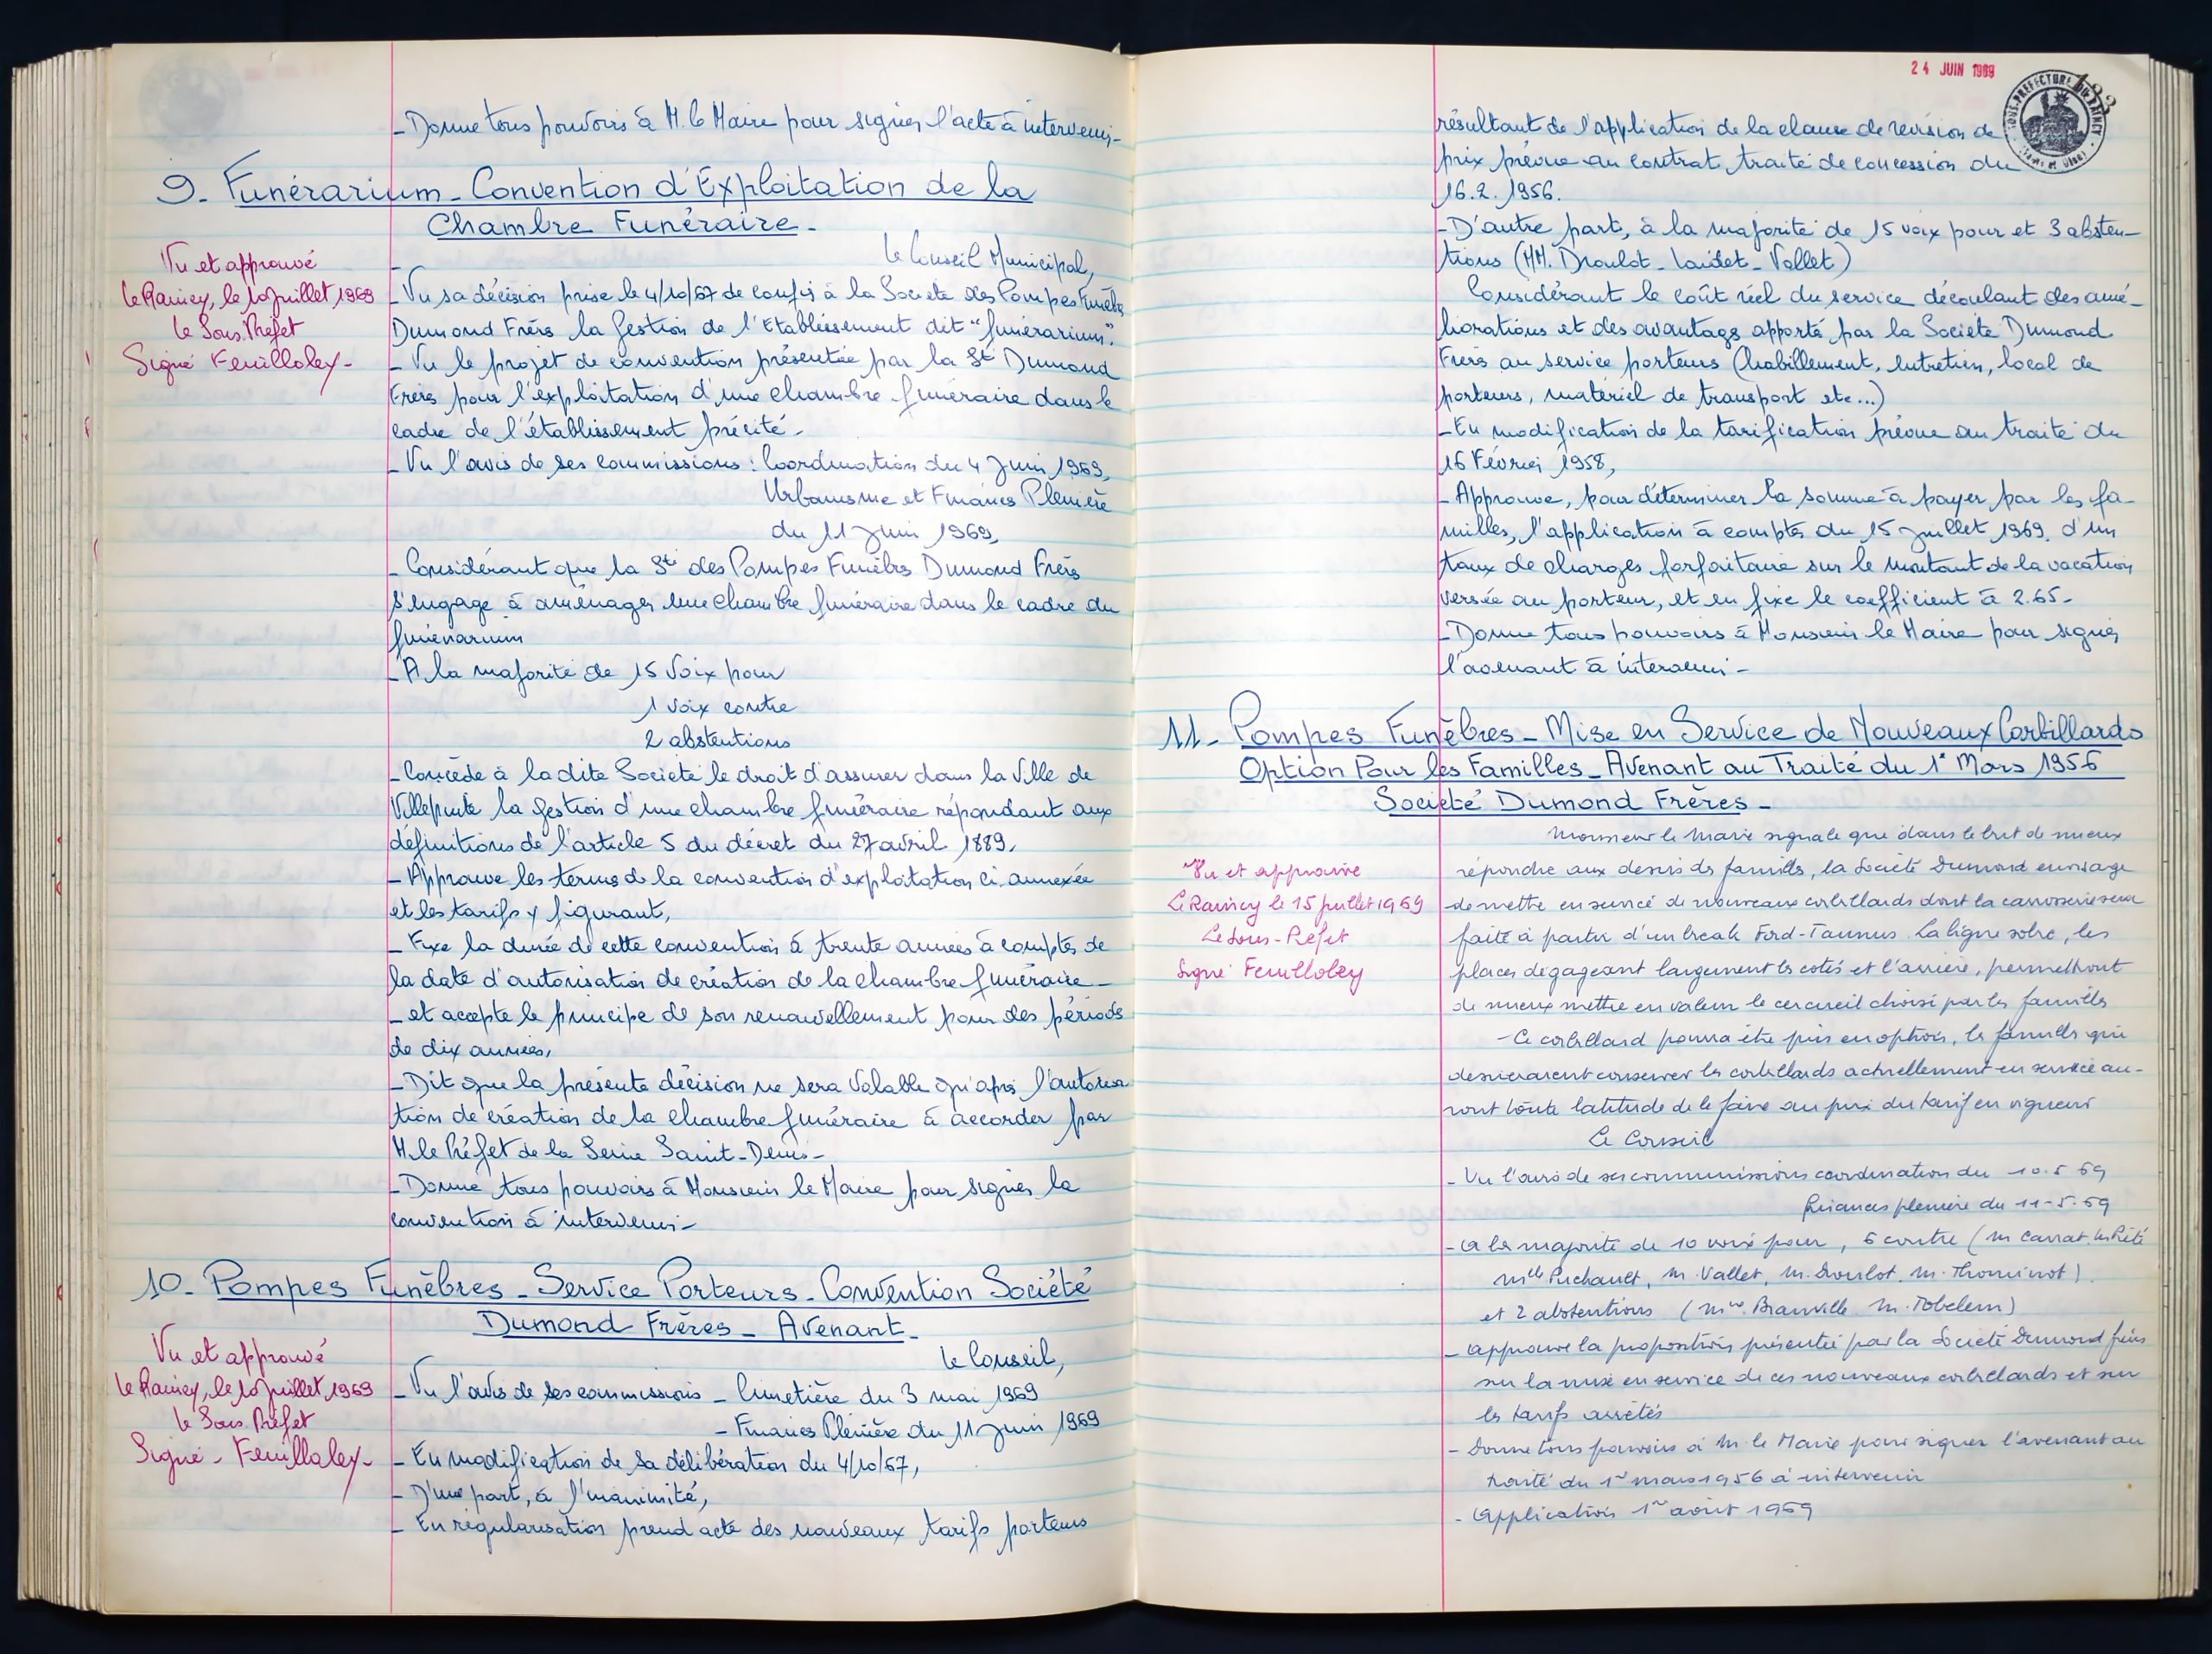 - Donne tous pouvoirs à M. le Maire pour signer l'acte à intervenir -
9. Funérarium - Convention d'Exploitation de la
Chambre Funéraire -
Vu et approuvé
le Raincy, le 10 juillet 1969
le Sous. Préfet
Signé Feuilloley -
le Conseil Municipal,
- Vu sa décision prise le 4/10/67 de confier à la Société des Pompes Funèbres
Dumond Frères la Gestion de l'Etablissement dit "funérarium".
- Vu le projet de convention présentée par la Sté Dumond
Frères pour l'exploitation d'une chambre funéraire dans le
cadre de l'établissement précité -
- Vu l'avis de ses commissions : Coordination du 4 Juin 1969,
Urbanisme et Finances Plénière
du 11 Juin 1969,
- Considérant que la Sté des Pompes Funèbres Dumond Frères
s'engage à aménager une chambre funéraire dans le cadre du
funérarium
- A la majorité de 15 Voix pour
1 voix contre
2 abstentions
- Concède à la dite Société le droit d'assurer dans la Ville de
Villepinte la gestion d'une chambre funéraire répondant aux
définitions de l'article 5 du décret du 27 avril 1889,
- Approuve les termes de la convention d'exploitation ci. annexée
et les tarifs y figurant,
- Fixe la durée de cette convention à trente années à compter de
la date d'autorisation de création de la chambre funéraire -
- et accepte le principe de son renouvellement pour des périodes
de dix années,
- Dit que la présente décision ne sera Valable qu'après l'autorisa
tion de création de la chambre funéraire à accorder par
M. le Préfet de la Seine Saint-Denis -
- Donne tous pouvoirs à Monsieur le Maire pour signer la
convention à intervenir -
10 - Pompes Funèbres - Service Porteurs - Convention Société
Dumond Frères - Avenant -
Vu et approuvé
le Raincy, le 10 juillet 1969
le Sous. Préfet
Signé - Feuilloley -
le Conseil,
- Vu l'avis de ses commissions - Cimetière du 3 mai 1969
- Finances Plénière du 11 Juin 1969
- En modification de sa délibération du 4/10/67,
- D'une part, à l'unanimité,
- En régularisation prend acte des nouveaux tarifs porteurs
24 JUIN 1969
SOUS-PRÉFECTURE DU RAINCY
résultant de l'application de la clause de révision de
prix prévue au contrat, traité de concession du
16.2.1956.
- D'autre part, à la majorité de 15 voix pour et 3 absten-
tions (MM. Droulot - Loidet - Vallet)
Considérant le coût réel du service découlant des amé-
liorations et des avantages apportés par la Société Dumond
Frères au service porteurs (habillement, entretien, local de
porteurs, matériel de transport etc...)
- En modification de la tarification prévue au traité du
16 Février 1958,
- Approuve, pour déterminer la somme à payer par les fa-
milles, l'application à compter du 15 juillet 1969, d'un
taux de charges forfaitaire sur le montant de la vacation
versée au porteur, et en fixe le coefficient à 2.65 -
- Donne tous pouvoirs à Monsieur le Maire pour signer
l'avenant à intervenir -
11 - Pompes Funèbres - Mise en Service de Nouveaux Corbillards
Option Pour les Familles - Avenant au Traité du 1er Mars 1956
Société Dumond Frères -
Vu et approuvé
Le Raincy le 15 juillet 1969
Le Sous-Préfet
Signé Feuilloley
Monsieur le Maire signale que dans le but de mieux
répondre aux desirs des familles, la Société Dumond envisage
de mettre en service de nouveaux corbillards dont la carrosserie sera
faite à partir d'un break Ford-Taunus. La ligne sobre, les
places dégageant largement les cotés et l'arrière, permettront
de mieux mettre en valeur le cercueil choisi par les familles
- Ce corbillard pourra être pris en option, les familles qui
desireraient conserver les corbillards actuellement en service au-
ront toute latitude de le faire au prix du tarif en vigueur
Le Conseil
- Vu l'avis de ses commissions coordination du 10.5.69
finances pleniere du 11-5.69
- à la majorité de 10 voix pour, 6 contre (M Carrat,
Mlle Puchault, M. Vallet, M. Droulot, M. Thominot).
et 2 abstentions (Mme Branville M. Tobelem)
- approuve la proposition présentée par la Société Dumond frères
sur la mise en service de ces nouveaux corbillards et sur
les tarifs arrêtés
- Donne tous pouvoirs à M. le Maire pour signer l'avenant au
traité du 1er mars 1956 à intervenir
- Application 1er août 1969